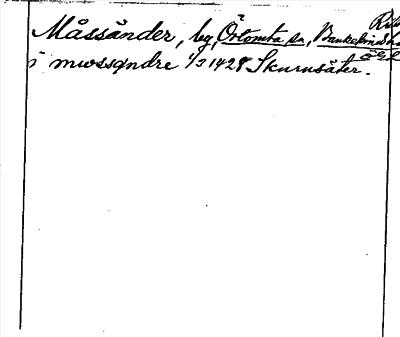 Måssänder, by, Örtomta sn, Bankekinds hd
ÖGL
i mwssgndre 1/3 1428 Skurusäter.